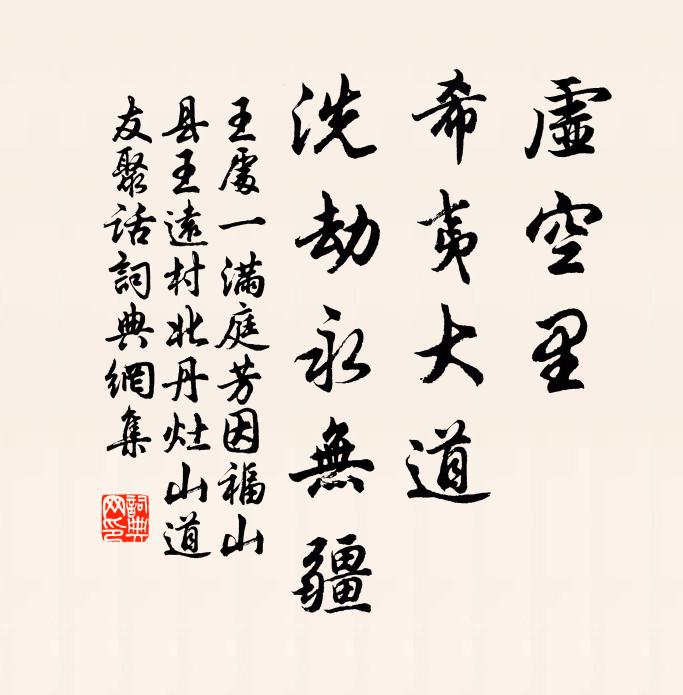 虛空里
希夷大道
洗劫永無疆
王處一滿庭芳因福山
县王遠村北丹灶山道
友聚话詞典網集
詞典網印